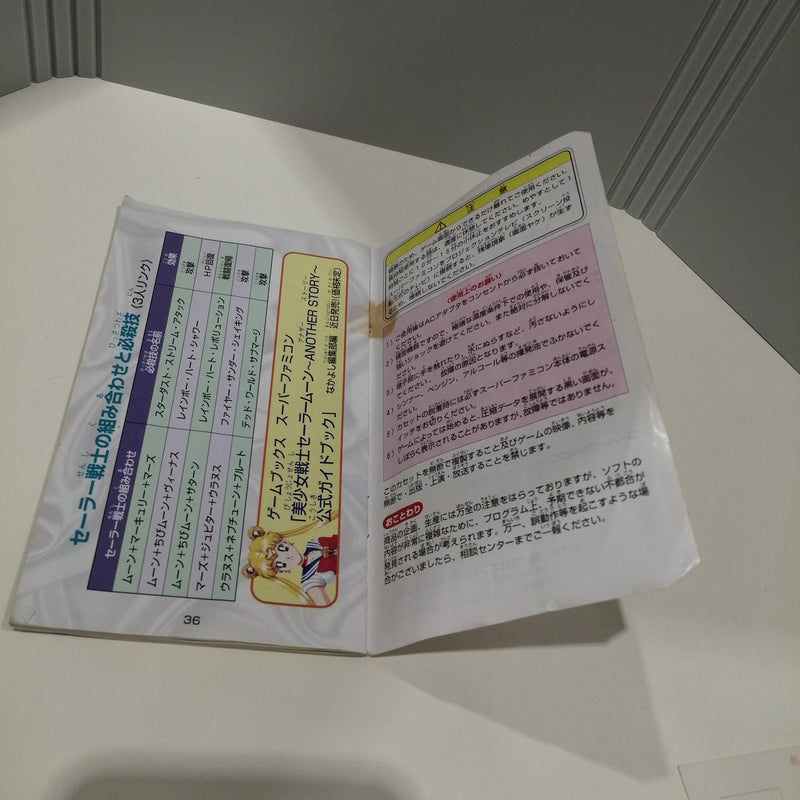 セーラー戦士の組み合わせと必殺技(3人リンク)
セーラー戦士の組み合わせ 必殺技の名前 効果
ムーン+マーキュリー+マーズ スターダスト・ストリーム・アタック 攻撃
ムーン+ちびムーン+ヴィーナス レインボー・ハート・シャワー HP回復
ムーン+ちびムーン+サターン レインボー・ハート・レボリューション 戦闘復帰
マーズ+ジュピター+ウラヌス ファイヤー・サンダー・シェイキング 攻撃
ウラヌス+ネプチューン+プルート デッド・ワールド・サブマージ 攻撃
ゲームブックス スーパーファミコン
「美少女戦士セーラームーン〜ANOTHER STORY〜
公式ガイドブック」
なかよし編集部編 近日発売!(価格未定)
36
注意
ゲーム画面からできるだけ離れてご使用ください。
〈使用上のお願い〉
1)ご使用後はACアダプタをコンセントから必ず抜いておいて
ください。
2)精密機器ですので、極端な温度条件下での使用や、保管及び
強いショックを避けてください。また絶対に分解しないでく
ださい。
3)端子部に手を触れたり、水にぬらすなど、汚さないようにし
てください。故障の原因となります。
4)シンナー、ベンジン、アルコール等の揮発油でふかないでく
ださい。
5)カセットの脱着時には必ずスーパーファミコン本体の電源ス
イッチをお切りください。
6)ゲームによっては始めると、圧縮データを展開する黒い画面が、
しばらく表示されることがありますが、故障等ではありません。
「このカセットを無断で複製すること及びゲームの映像、内容等を
無断で、出版・上演・放送することを禁じます。
おことわり
商品の企画、生産には万全の注意をはらっておりますが、ソフトの
内容が非常に複雑なために、プログラム上、予期できない不都合が
発見される場合が考えられます。万一、誤動作等を起こすような場
合がございましたら、相談センターまでご一報ください。